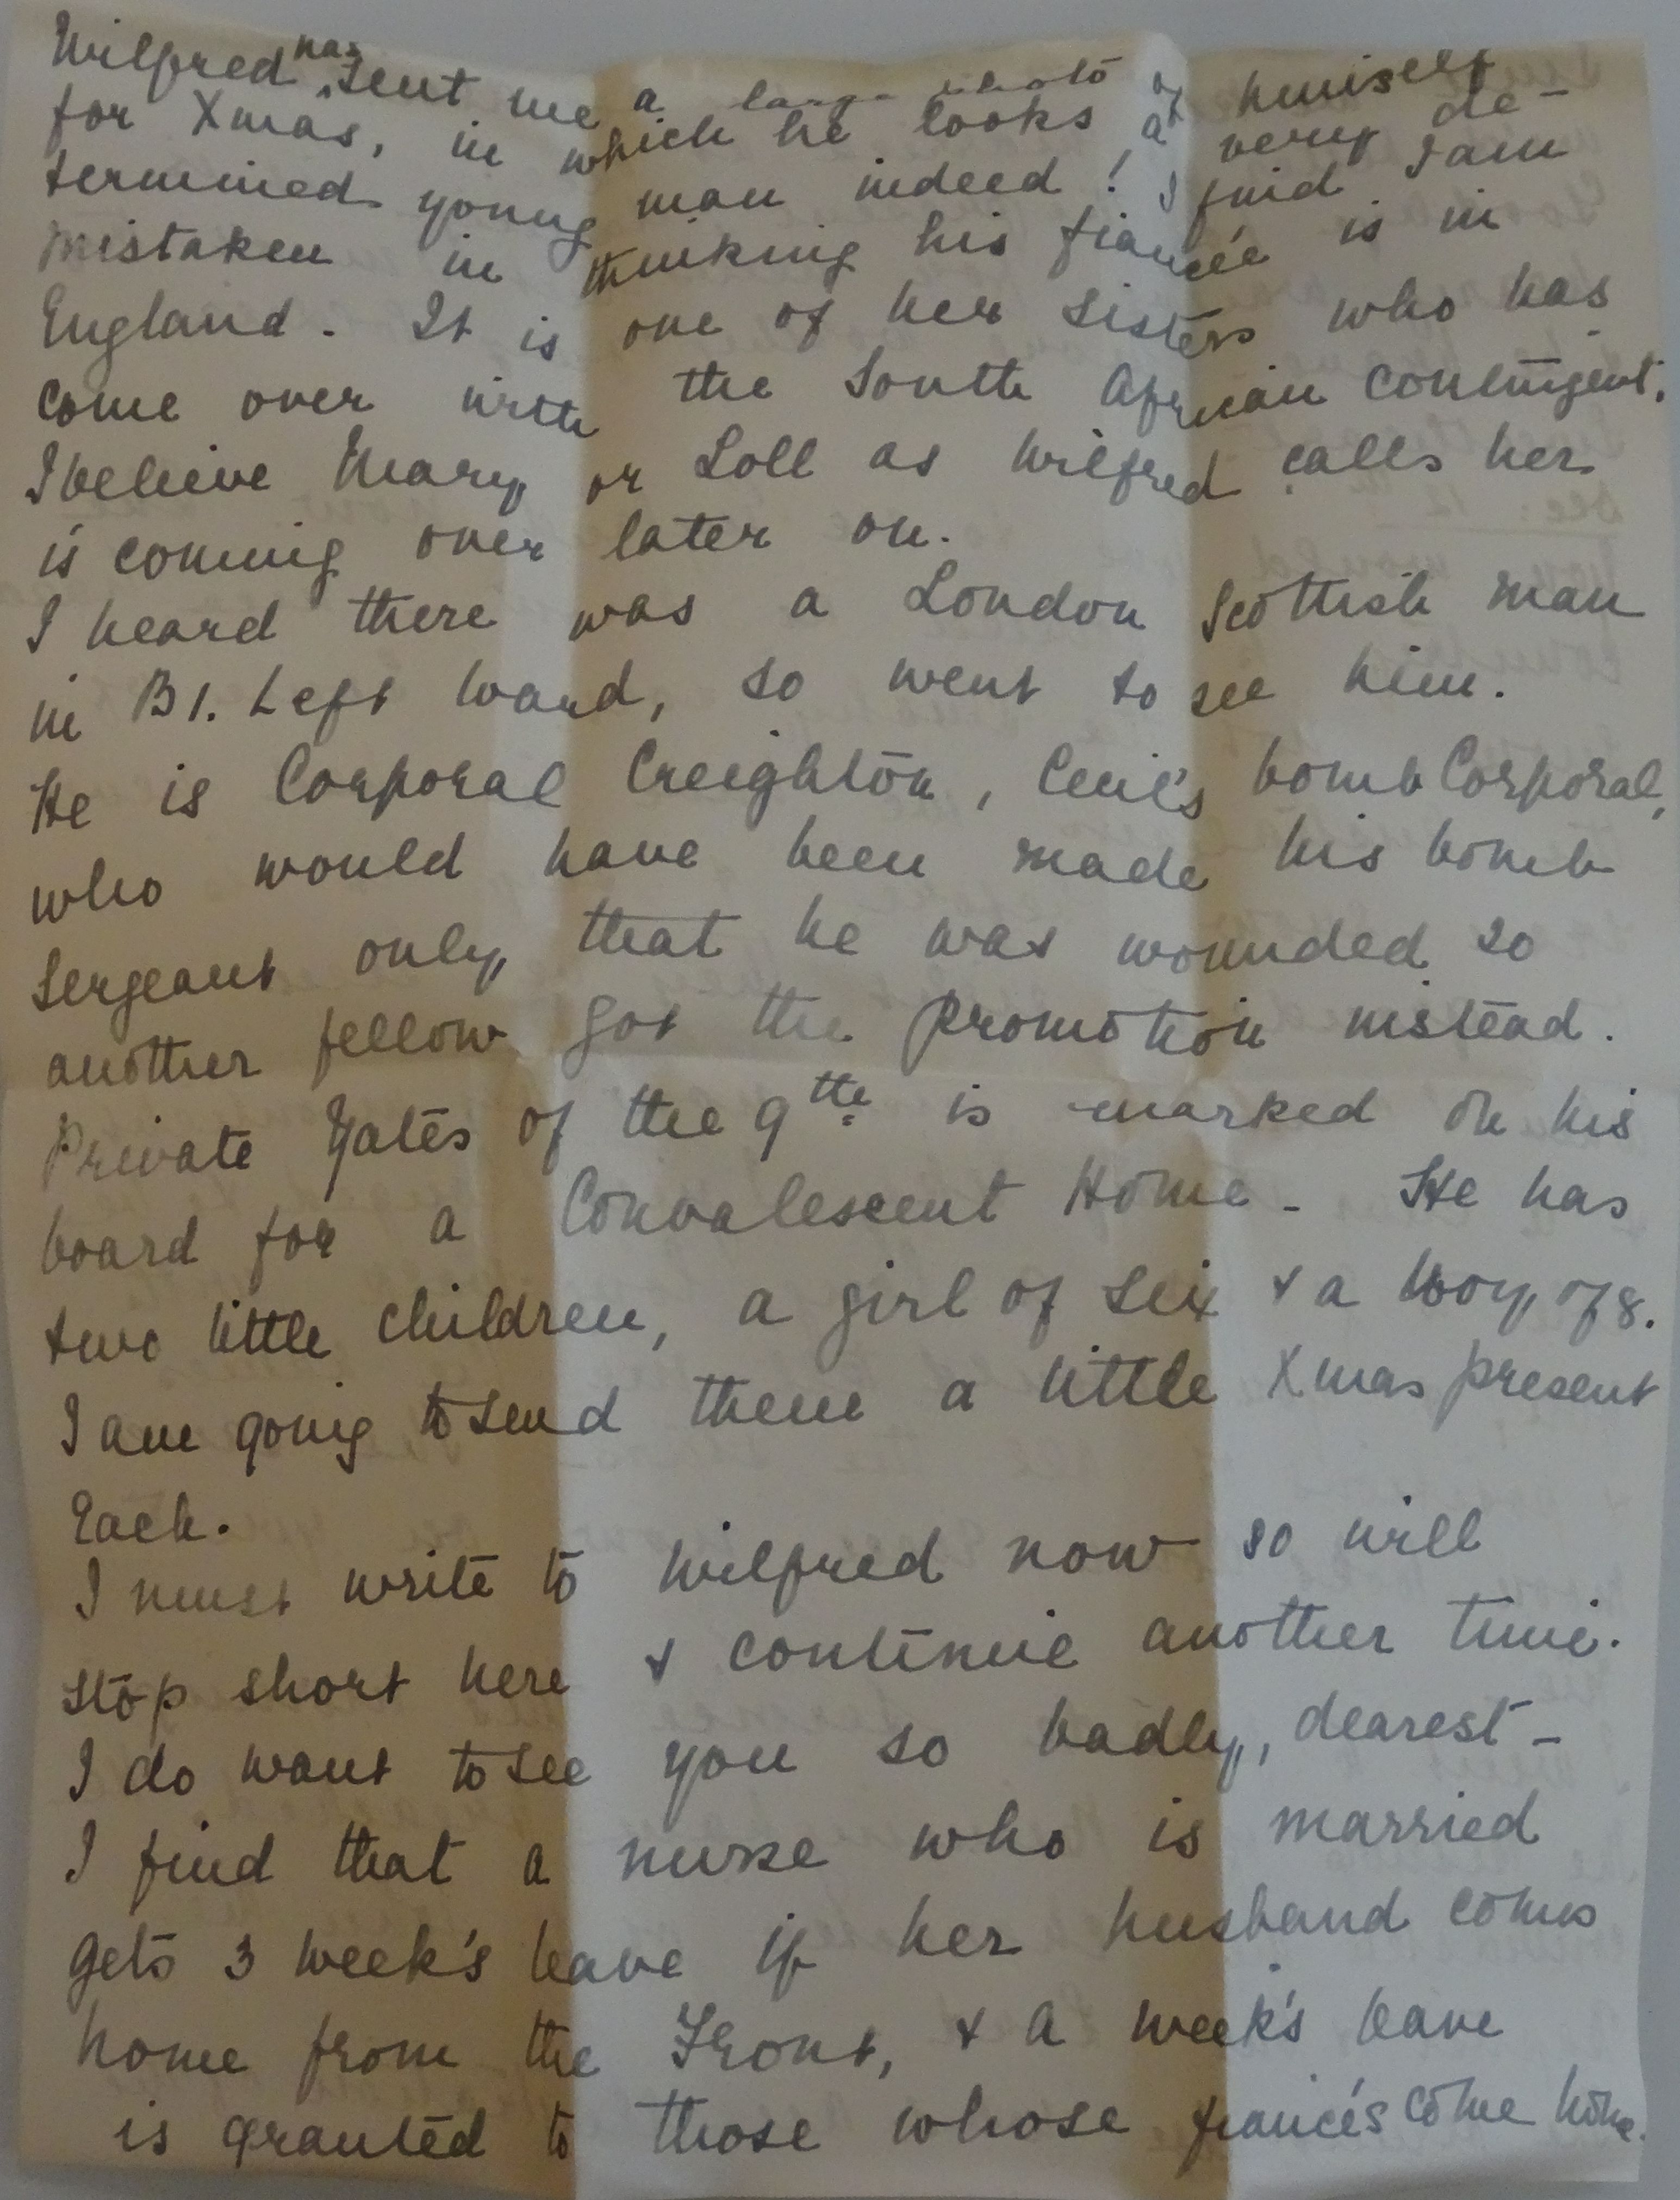 Wilfred has sent me a large photo of himself
for Xmas, in which he looks a very de-
termined young man indeed! I find I am
mistaken in thinking his fiancée is in
England. It is one of her sisters who has
come over with the South African Contingent.
I believe Mary or Loll as Wilfred calls her
is coming over later on.
I heard there was a London Scottish man
in B1. Left Ward, so went to see him.
He is Corporal Creighton, Cecil's bomb Corporal,
who would have been made his bomb
Sergeant only that he was wounded so
another fellow got the promotion instead.
Private Yates of the 9th is marked on his
board for a Convalescent Home - He has
two little children, a girl of six & a boy of 8.
I am going to send them a little Xmas present
Each.
I must write to Wilfred now so will
stop short here & continue another time.
I do want to see you so badly, dearest -
I find that a nurse who is married
gets 3 week's leave if her husband comes
home from the Front, & a week's leave
is granted to those whose fiancés come home.